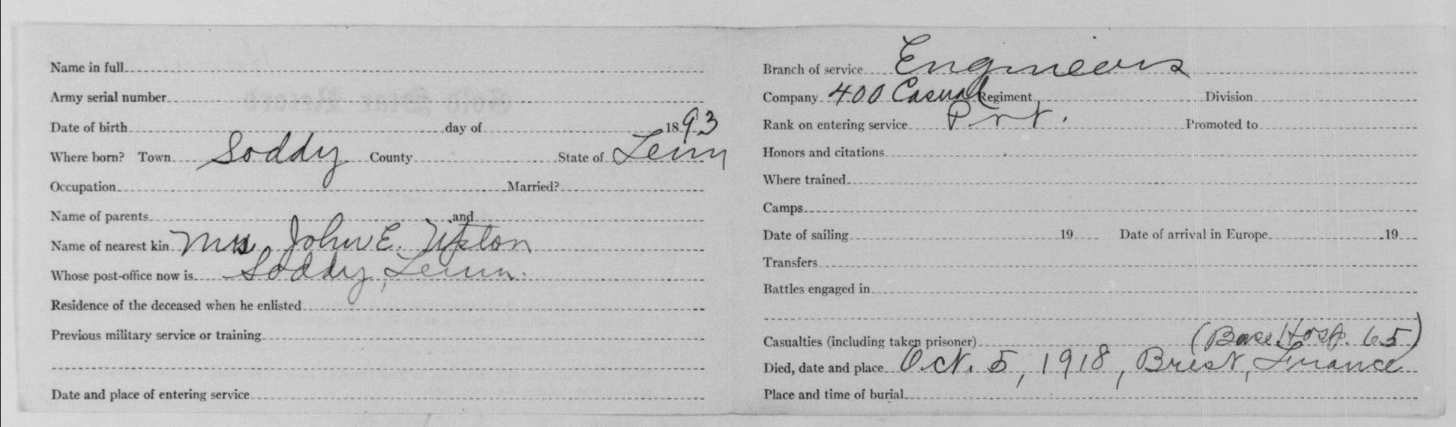 Name in full
Army serial number
Date of birth day of 1893
Where born? Town Soddy County State of Tenn
Occupation Married?
Name of parents and
Name of nearest kin Mrs. John E. Upton
Whose post-office now is Soddy, Tenn.
Residence of the deceased when he enlisted
Previous military service or training
Date and place of entering service
Branch of service Engineers
Company 400 Casual Regiment Division
Rank on entering service Pvt. Promoted to
Honors and citations
Where trained
Camps
Date of sailing 19 Date of arrival in Europe 19
Transfers
Battles engaged in
Casualties (including taken prisoner) (Base Hosp. 65)
Died, date and place Oct. 5, 1918, Brest, France
Place and time of burial